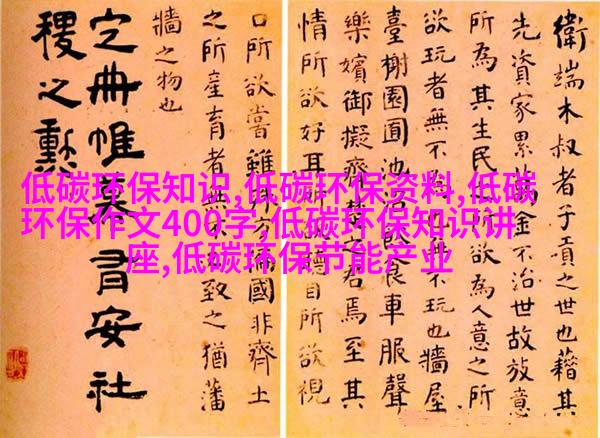 衛端木叔者子貢之世也藉其
先資家累金不治世故放意
所為其生民欲為人意之所
欲玩者無不不玩也牆屋
臺榭園囿池食車服聲
樂嬪御擬齊楚君焉至其
情所欲好耳目所欲視
口所欲嘗雖方國非齊土
之所產育者無不致之猶藩
牆之物也
定冊帷幕有安社
稷之勲
低碳环保知识,低碳环保资料,低碳
环保作文400字,低碳环保知识讲
座,低碳环保节能产业